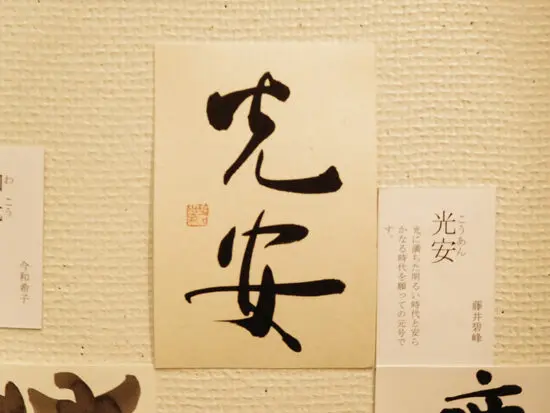 光安
こうあん
光安
光に満ちた明るい時代と安ら
かなる時代を願っての元号で
す。
藤井碧峰
わこう
今和希子